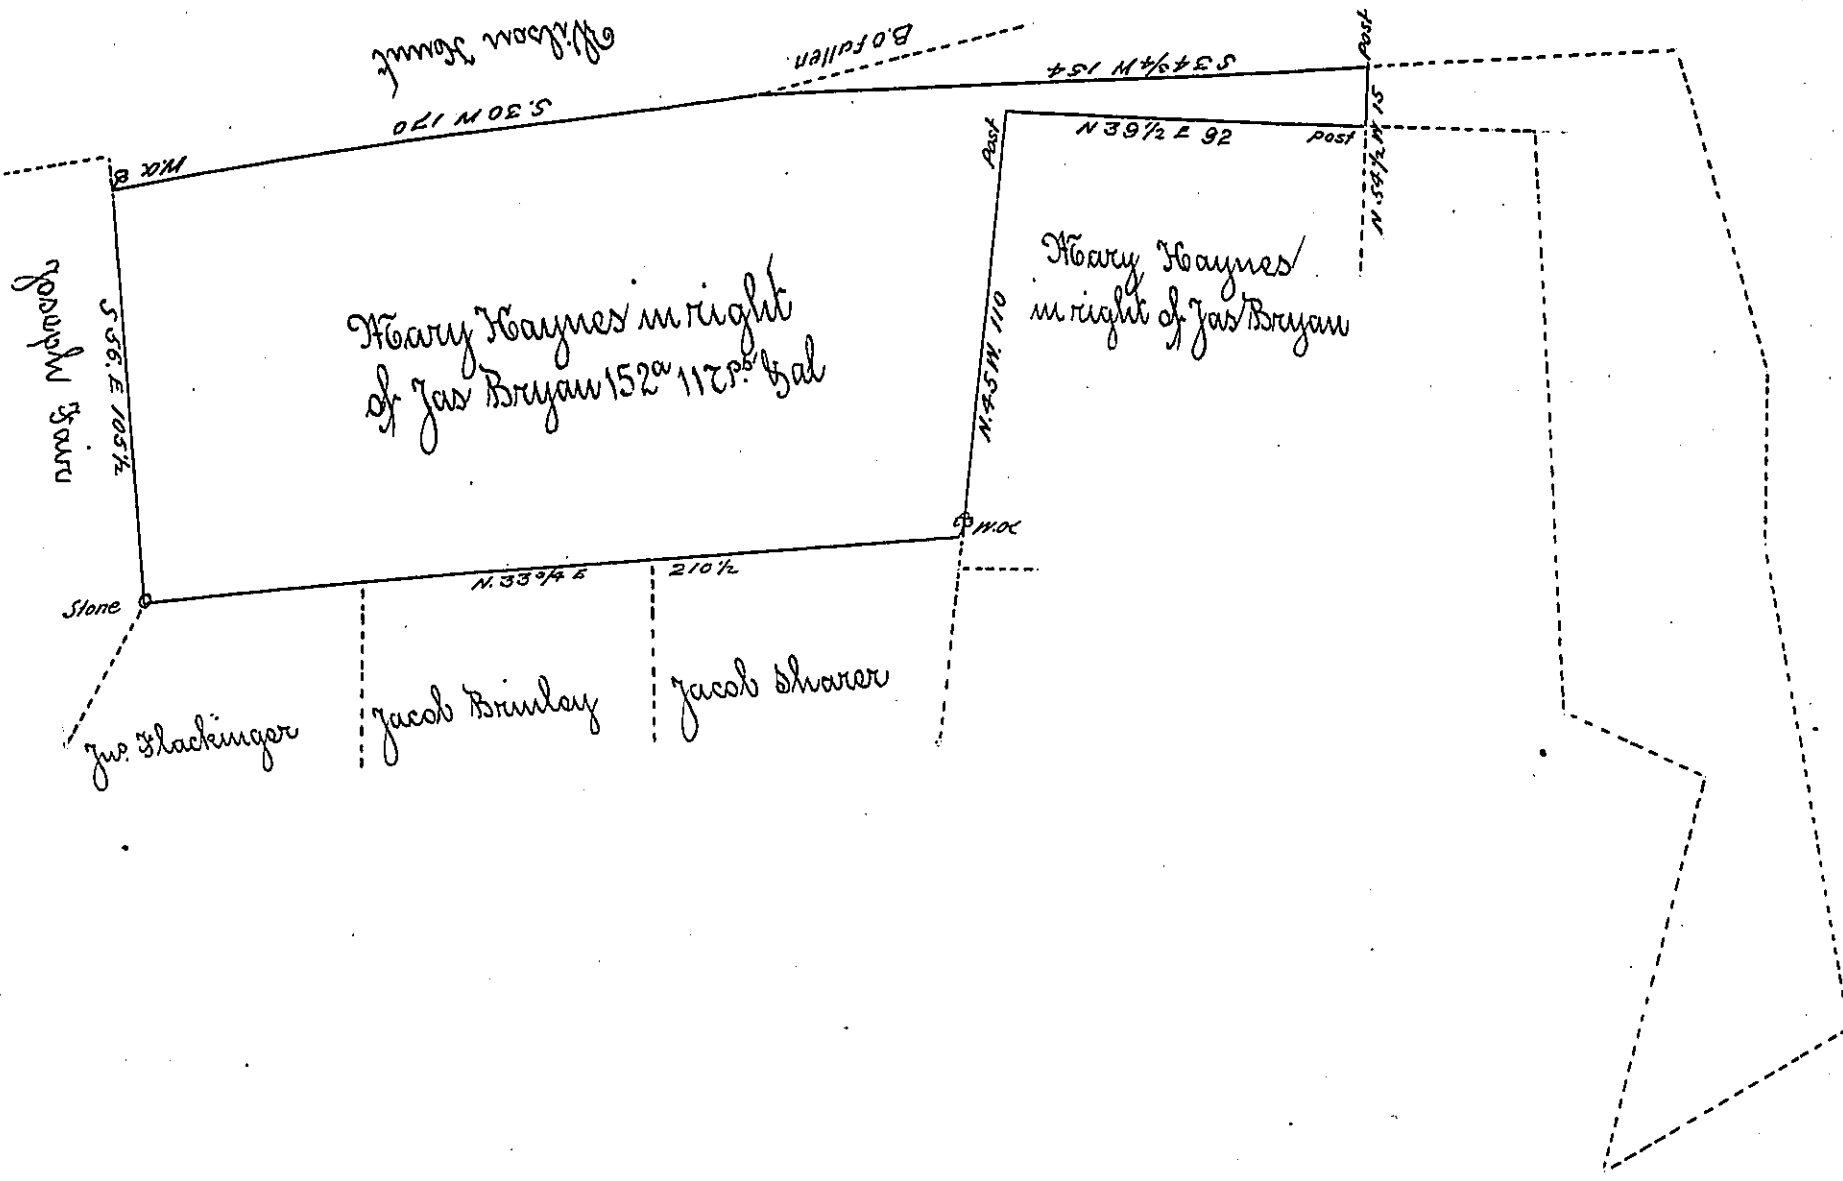 Wilson Hunt
B.O fallen
S 34 3/4 W 154
Post
S. 30 W 170
W.O
N 39 1/2 E 92
Post
Post
N 54 1/2 W 15
S 56. E 105 1/2
Mary Haynes in right
of Jas Bryan 152a 117 Ps. & al
N. 45 W. 110
Mary Haynes
in right of Jas Bryan
W.O
N. 33 3/4 E 210 1/2
Stone
Jno. Flackinger
Jacob Brinley
Jacob Sharer